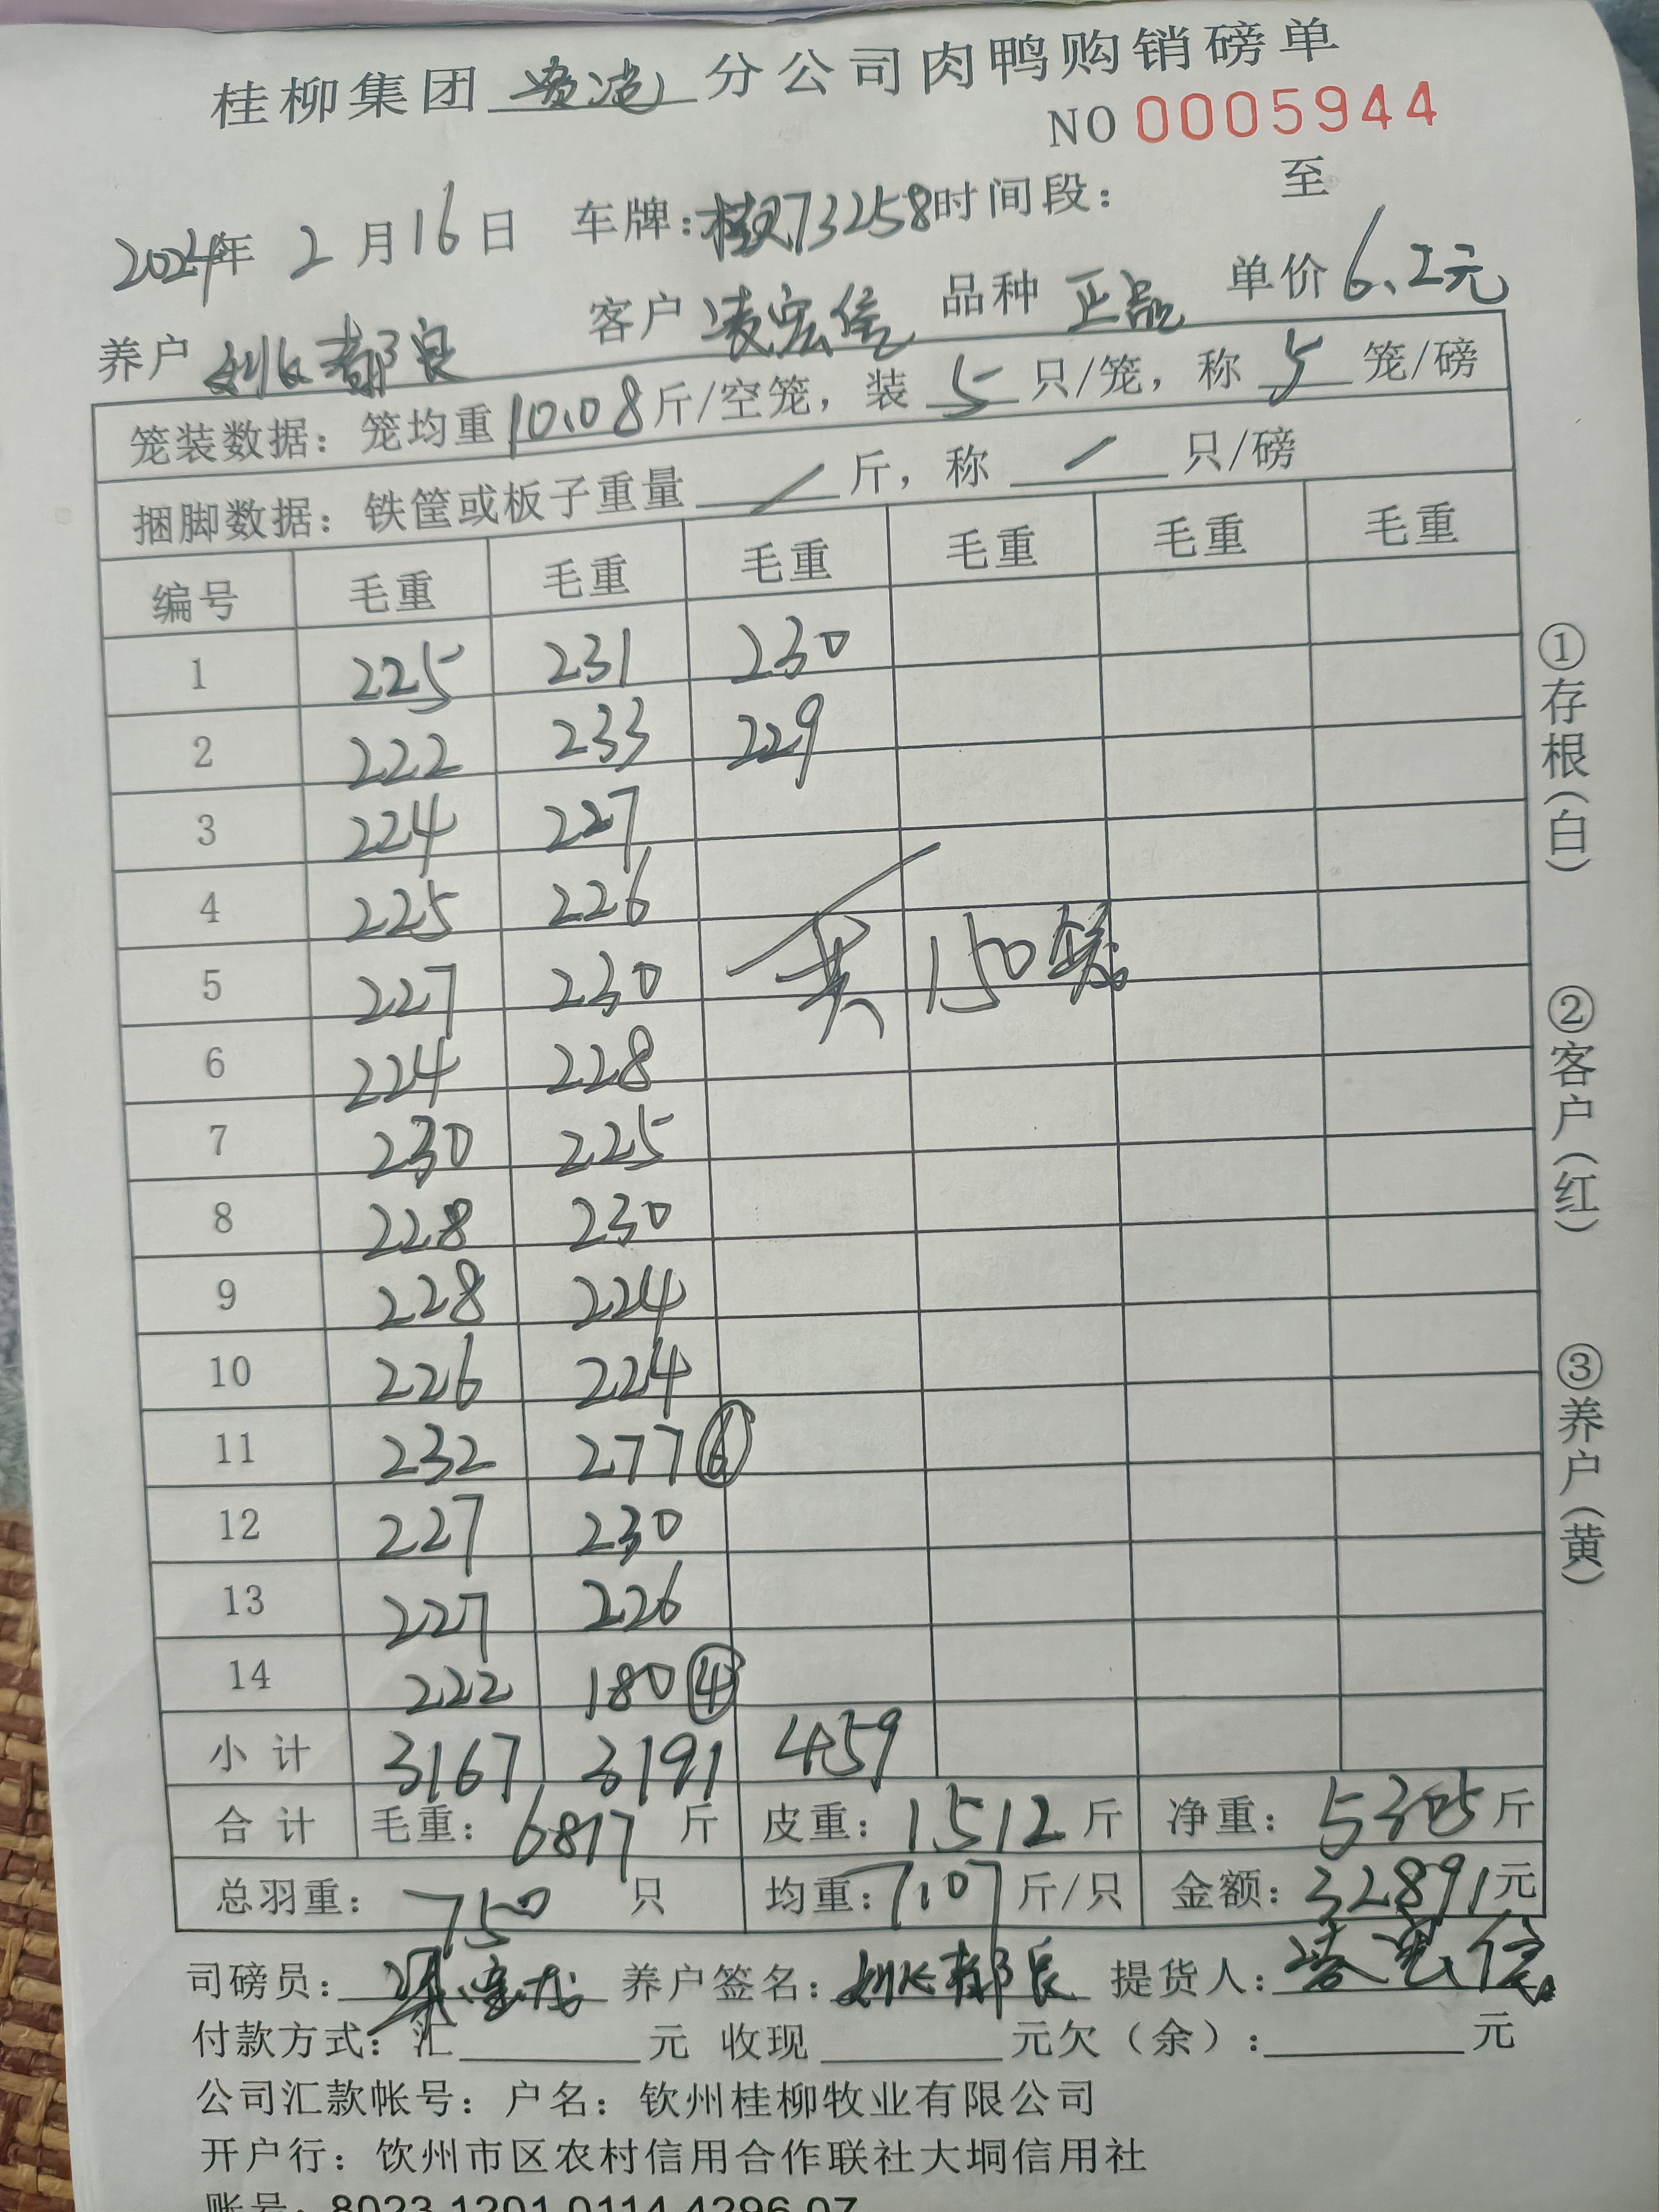 桂柳集团 分公司肉鸭购销磅单
NO 0005944
2024年 2月16日 车牌:桂 73258 时间段: 至
养户 刘 郁良 客户 凌宏信 品种 正品 单价 6.2元
笼装数据: 笼均重10.08斤/空笼, 装 5 只/笼, 称 5 笼/磅
捆脚数据: 铁筐或板子重量 / 斤, 称 / 只/磅
编号 毛重 毛重 毛重 毛重 毛重 毛重
1 225 231 230
2 222 233 229
3 224 227
4 225 226
5 227 230 共 150笼
6 224 228
7 230 225
8 228 230
9 228 224
10 226 224
11 232 277⑥
12 227 230
13 227 226
14 222 180④
小计 3167 3191 459
合计 毛重: 6817 斤 皮重: 1512 斤 净重: 5305 斤
总羽重: 750 只 均重: 7.07 斤/只 金额: 32891元
司磅员: 养户签名: 刘 郁良 提货人: 凌宏信
付款方式: 汇 元 收现 元欠(余): 元
公司汇款帐号: 户名: 钦州桂柳牧业有限公司
开户行: 钦州市区农村信用合作联社大垌信用社
账号: 8023 1201 0114 4296 07
①存根(白)
②客户(红)
③养户(黄)